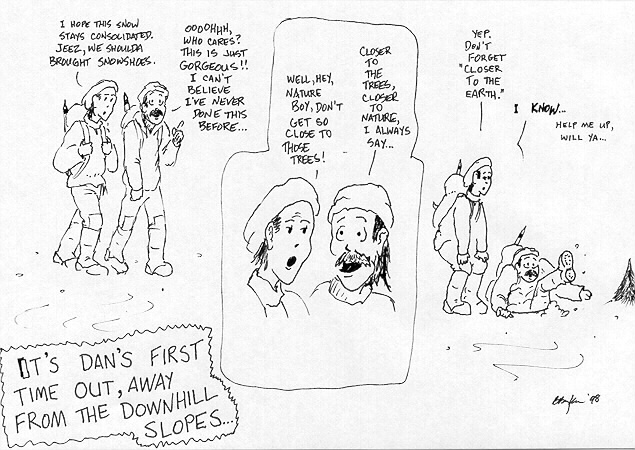 I HOPE THIS SNOW
STAYS CONSOLIDATED.
JEEZ, WE SHOULDA
BROUGHT SNOWSHOES.
OOOOHHH,
WHO CARES?
THIS IS JUST
GORGEOUS!!
I CAN'T
BELIEVE
I'VE NEVER
DONE THIS
BEFORE...
WELL, HEY,
NATURE
BOY, DON'T
GET SO
CLOSE TO
THOSE
TREES!
CLOSER
TO
THE
TREES,
CLOSER
TO
NATURE,
I ALWAYS
SAY...
YEP.
DON'T
FORGET
"CLOSER
TO THE
EARTH."
I KNOW...
HELP ME UP,
WILL YA...
IT'S DAN'S FIRST
TIME OUT, AWAY
FROM THE DOWNHILL
SLOPES...
'98